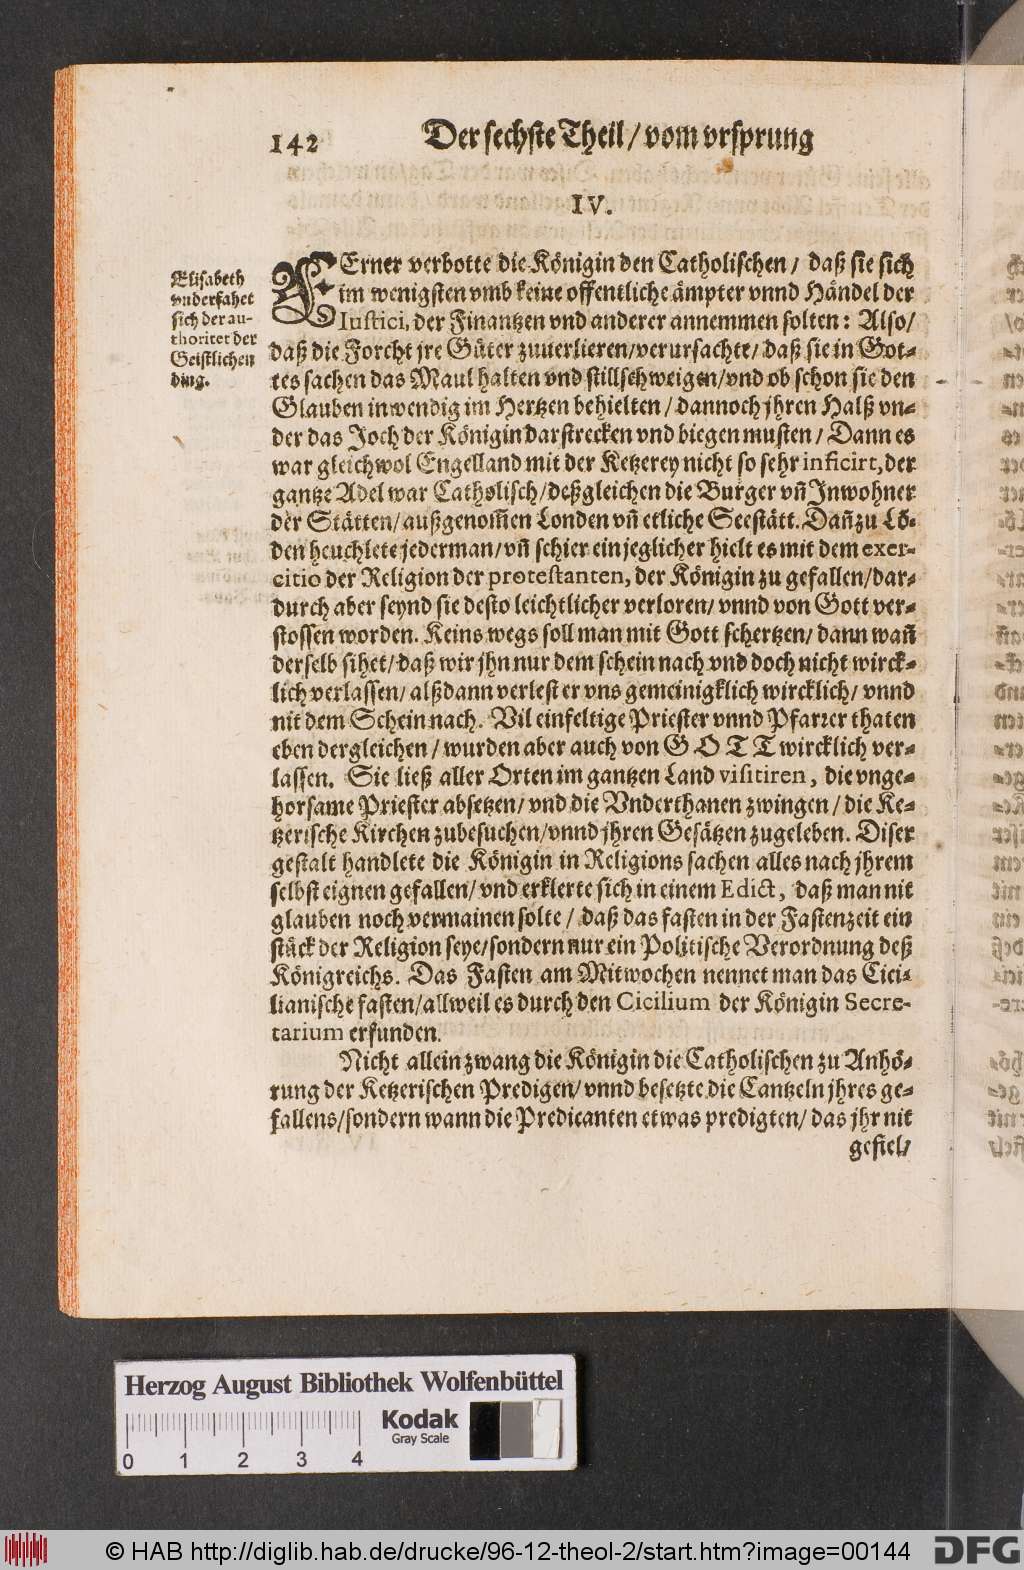 142 Der sechste Theil / vom vrsprung
IV.
Elisabeth
vnderfahet
sich der au-
thoritet der
Geistlichen
ding.
FErner verbotte die Königin den Catholischen / daß sie sich
im wenigsten vmb keine offentliche ämpter vnnd Händel der
Iustici, der Finantzen vnd anderer annemmen solten: Also/
daß die Forcht jre Güter zuuerlieren/verursachte/ daß sie in Got-
tes sachen das Maul halten vnd stillschweigen/vnd ob schon sie den
Glauben inwendig im Hertzen behielten / dannoch jhren Halß vn-
der das Joch der Königin darstrecken vnd biegen musten / Dann es
war gleichwol Engelland mit der Ketzerey nicht so sehr inficirt, der
gantze Adel war Catholisch/deßgleichen die Burger vn̄ Inwohner
der Stätten/außgenom̄en Londen vn̄ etliche Seestätt. Dan̄ zu Lō-
den heuchlete jederman/vn̄ schier ein jeglicher hielt es mit dem exer-
citio der Religion der protestanten, der Königin zu gefallen/dar-
durch aber seynd sie desto leichtlicher verloren/ vnnd von Gott ver-
stossen worden. Keins wegs soll man mit Gott schertzen/ dann wan̄
derselb sihet/daß wir jhn nur dem schein nach vnd doch nicht wirck-
lich verlassen/ alßdann verlest er vns gemeinigklich wircklich/ vnnd
nit dem Schein nach. Vil einfeltige Priester vnnd Pfarrer thaten
eben dergleichen / wurden aber auch von GOTT wircklich ver-
lassen. Sie ließ aller Orten im gantzen Land visitiren, die vnge-
horsame Priester absetzen/ vnd die Vnderthanen zwingen / die Ke-
tzerische Kirchen zubesuchen/vnnd jhren Gesätzen zugeleben. Diser
gestalt handlete die Königin in Religions sachen alles nach jhrem
selbst eignen gefallen/ vnd erklerte sich in einem Edict, daß man nit
glauben noch vermainen solte / daß das fasten in der Fastenzeit ein
stück der Religion seye/sondern nur ein Politische Verordnung deß
Königreichs. Das Fasten am Mitwochen nennet man das Cici-
lianische fasten/allweil es durch den Cicilium der Königin Secre-
tarium erfunden.
Nicht allein zwang die Königin die Catholischen zu Anhö-
rung der Ketzerischen Predigen/ vnnd besetzte die Cantzeln jhres ge-
fallens/sondern wann die Predicanten etwas predigten/ das jhr nit
gefiel/
Herzog August Bibliothek Wolfenbüttel
Kodak
Gray Scale
0 1 2 3 4
© HAB http://diglib.hab.de/drucke/96-12-theol-2/start.htm?image=00144 DFG